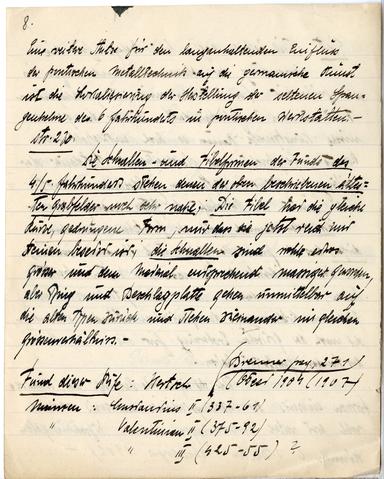 8.
Eine weitere Stütze für den langanhaltenden Einfluß
der pontischen Metalltechnik auf die germanische Kunst
ist die Lokalisierung der Herstellung der seltenen Span-
genhelme des 6 Jahrhunderts in pontischen Werkstätten. -
Str. 210
Die Schnallen - und Fibelformen der Funde des
4/5 Jahrhunderts stehen denen des oben beschriebenen
Grabfelder noch sehr nahe, Die Fibel hat die gleiche
kurze, gedrungene Form, nur dass sie jetzt reich mit
Steinen besetzt ist, die Schnallen sind etwas
grösser und dem Material entsprechend massiger geworden,
aber Ring und Beschlagplatte gehen unmittelbar auf
die alten Typen zurück und stehen zueinander im gleichen
Grössenverhältnis. -
Brenner pag 271
Fund dieser Stufe: (1904 (1907)
Münzen: Constantius II (337-61)
" Valentinian II (375-92)
" III (425-55) ?